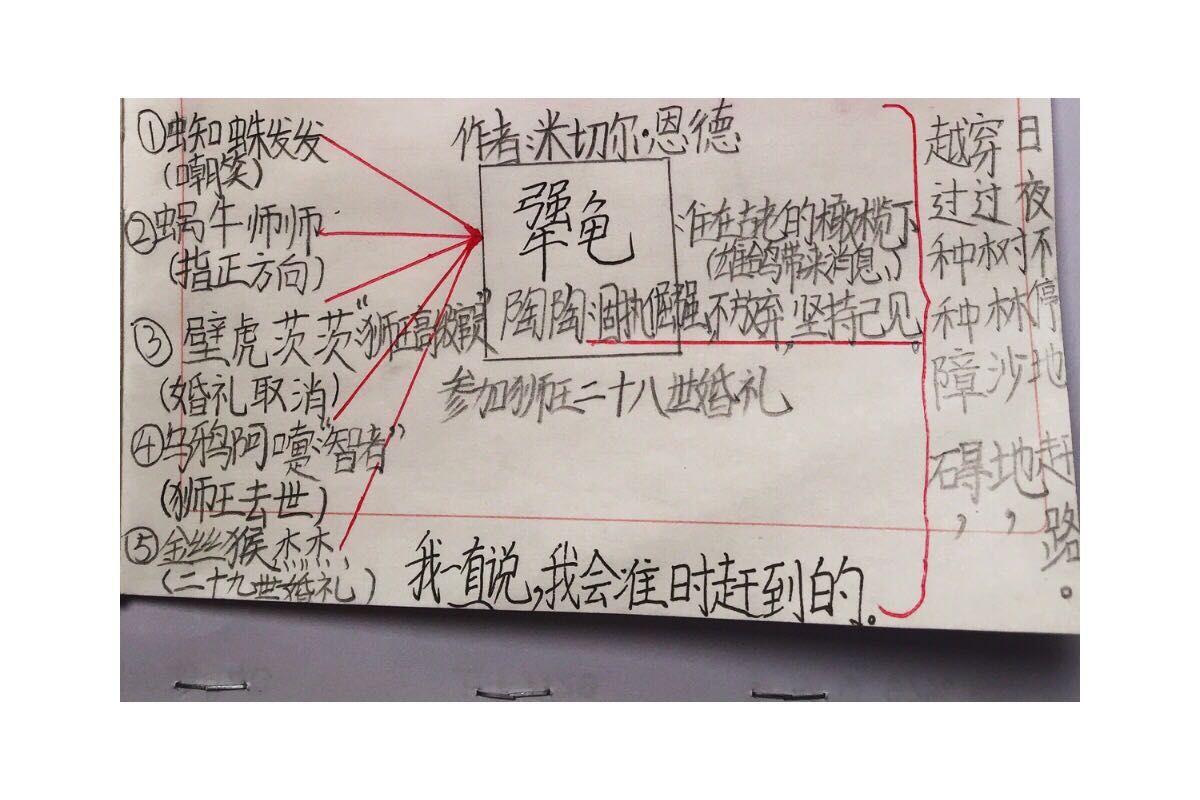 ①蜘蛛发发
(嘲笑)
②蜗牛师师
(指正方向)
③壁虎茨茨"狮王高级官员"
(婚礼取消)
④乌鸦阿嚏:"智者"
(狮王去世)
⑤金丝猴杰杰
(二十九世婚礼)
作者:米切尔·恩德
犟龟
:住在古老的橄榄下
(雄鸽带来消息)
陶陶:固执倔强,不放弃,坚持己见。
参加狮王二十八世婚礼
我一直说,我会准时赶到的。
日夜不停地赶路。
穿过树林沙地,
越过种种障碍,